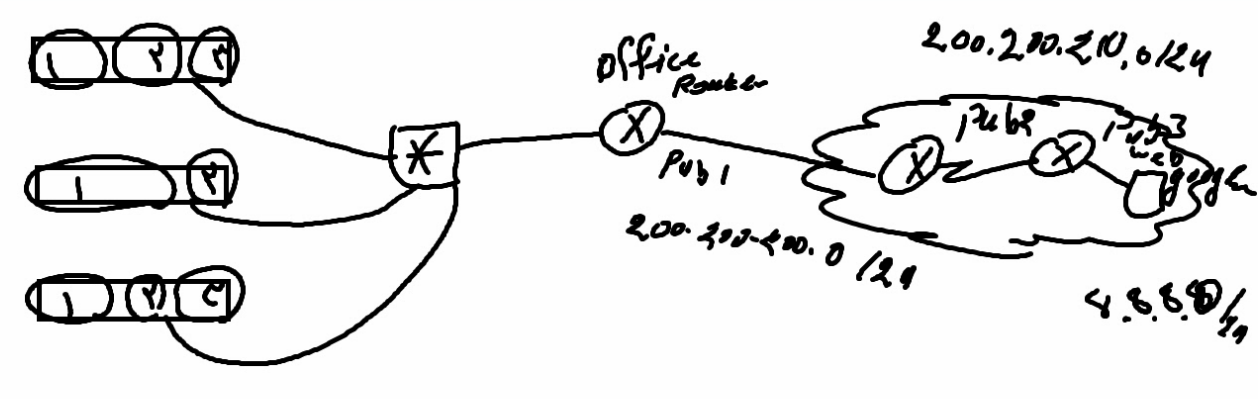 1 ۲ ۳
1 ۲
1 ۲ ۳
office
Router
Pub 1
200.200.200.0 /24
200.200.210.0/24
Pub2
Pub3
web
google
8.8.8.0/24